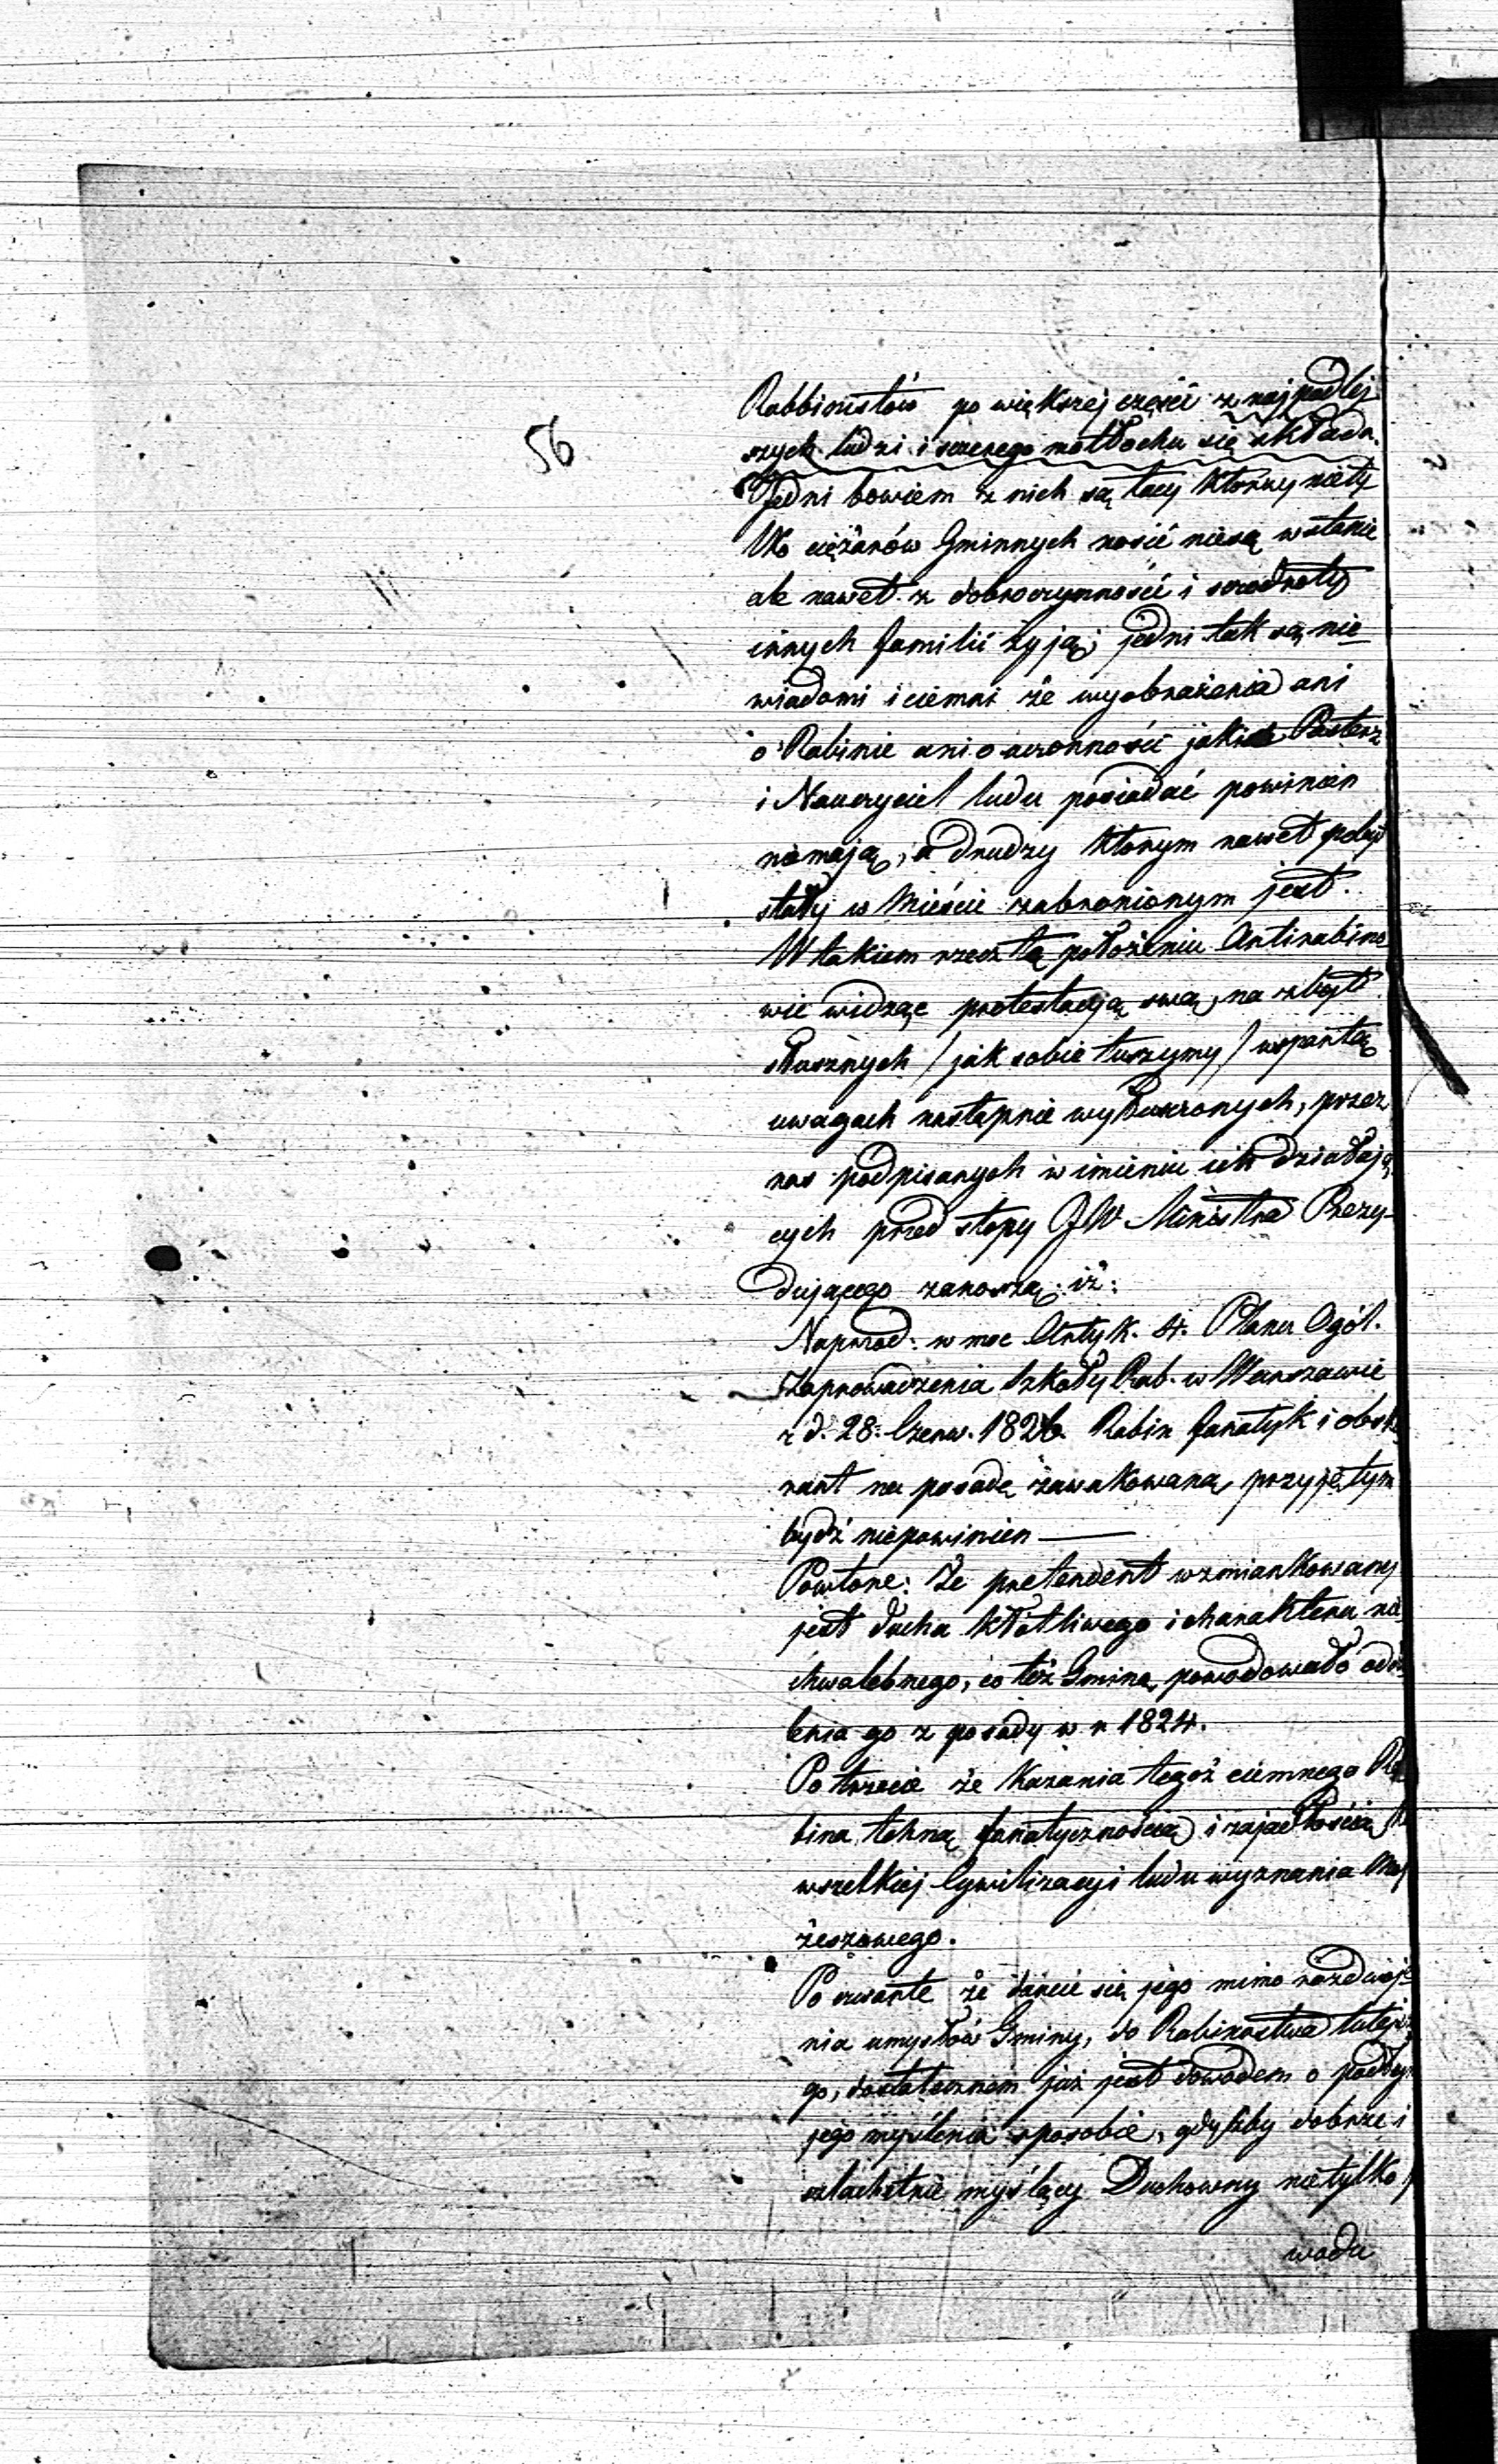 56
Rabbinistów po większej części z najpodlej
szych ludzi i szczerego motłochu się składa.
Jedni bowiem z nich są tacy którzy niety
lko ciężarów Gminnych nosić niesą wstanie
ale nawet z dobroczynności i szczodroty
innych familii żyją; jedni tak są nie
wiadomi i ciemni że wyobrażenia ani
o Rabinie ani o uczonności jakie Pasterz
i Nauczyciel ludu posiadać powinien
niemają, a drudzy którym nawet pobyt
stały w Mieście zabronionym jest.
W takiem rzeczą położeniu Antirabino
wie widząc protestacyją swą, na zbyt
słusznych / jak sobie tuszymy / wspartą
uwagach następnie wyłuszczonych, przez
nas podpisanych w imieniu ich działają
cych przed stopy JW Ministra Prezy-
dującego zanoszą: iż:
Naprzód: w moc Artyk. 4. Planu Ogól.
Zaprowadzenia Szkoły Rab. w Warszawie
z d. 28. Czerw. 1826. Rabin fanatyk i obsku
rant na posadę zawakowaną, przyjętym
bydź niepowinien —
Powtóre: Że pretendent wzmiankowany
jest ducha kłótliwego i charakteru nie
chwalebnego, co też Gminę powodowało odda
lenia go z posady w r 1824.
Po trzecie że Kazania tegoż ciemnego Ra
bina tchną fanatycznością i zajadłością
wszelkiej Cywilizacyi ludu wyznania Moj
żeszowego.
Po czwarte że darcie się jego mimo rozdwoje
nia umysłów Gminy, do Rabinostwa tutejsze
go, dostatecznem już jest dowodem o podłym
jego myślenia sposobie, gdyżby dobrze i
szlachetnie myślący Duchowny nietylko
wodu